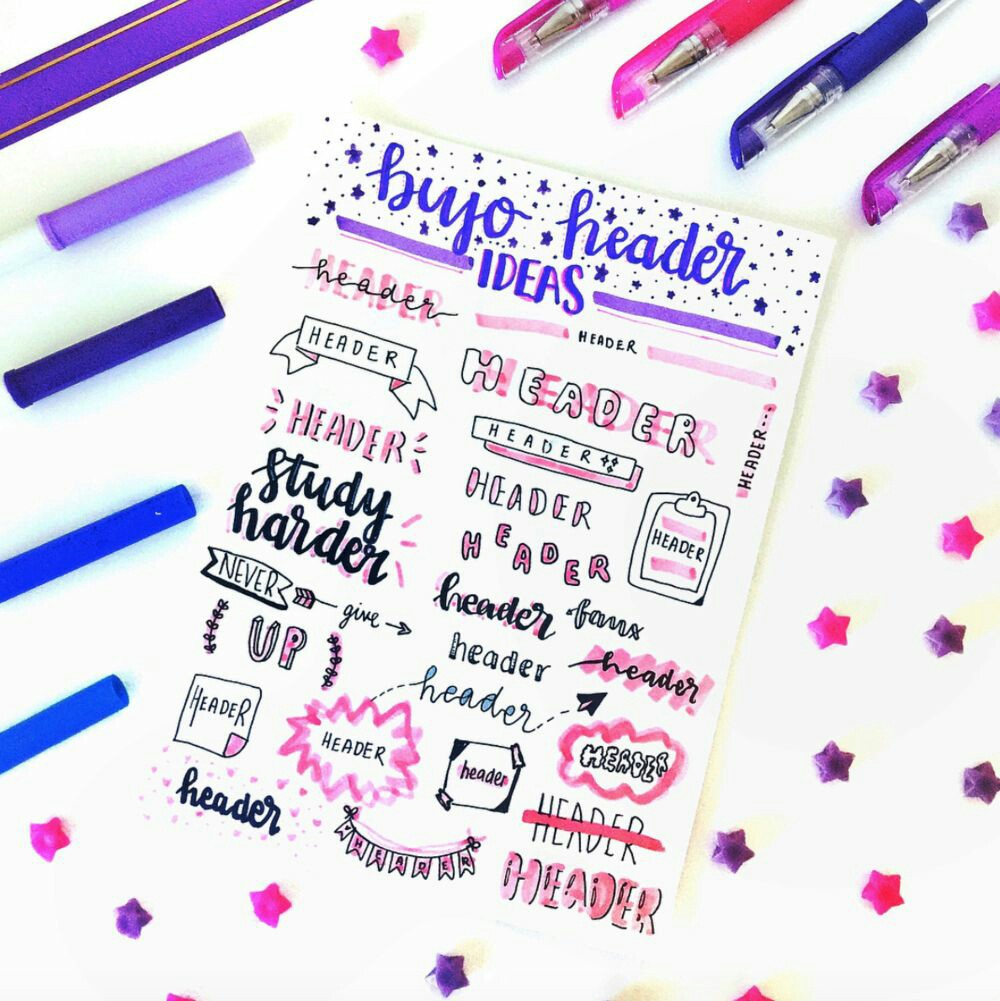 bujo header
IDEAS
header
HEADER
HEADER
HEADER
HEADER
HEADER
HEADER...
HEADER
HEADER
study
harder
HEADER
HEADER
HEADER
NEVER
give
UP
header
faux
header
header
header
HEADER
HEADER
header
HEADER
header
HEADER
HEADER
HEADER